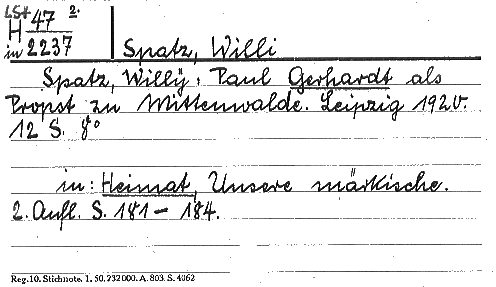 LSt
H 47 2.
in 2237
Spatz, Willi
Spatz, Willy: Paul Gerhardt als
Propst zu Mittenwalde. Leipzig 1920.
12 S. 8°
in: Heimat, Unsere märkische.
2. Aufl. S. 181 - 184.
Reg. 10. Stichnote. 1. 50. 232000. A. 803. S. 4062